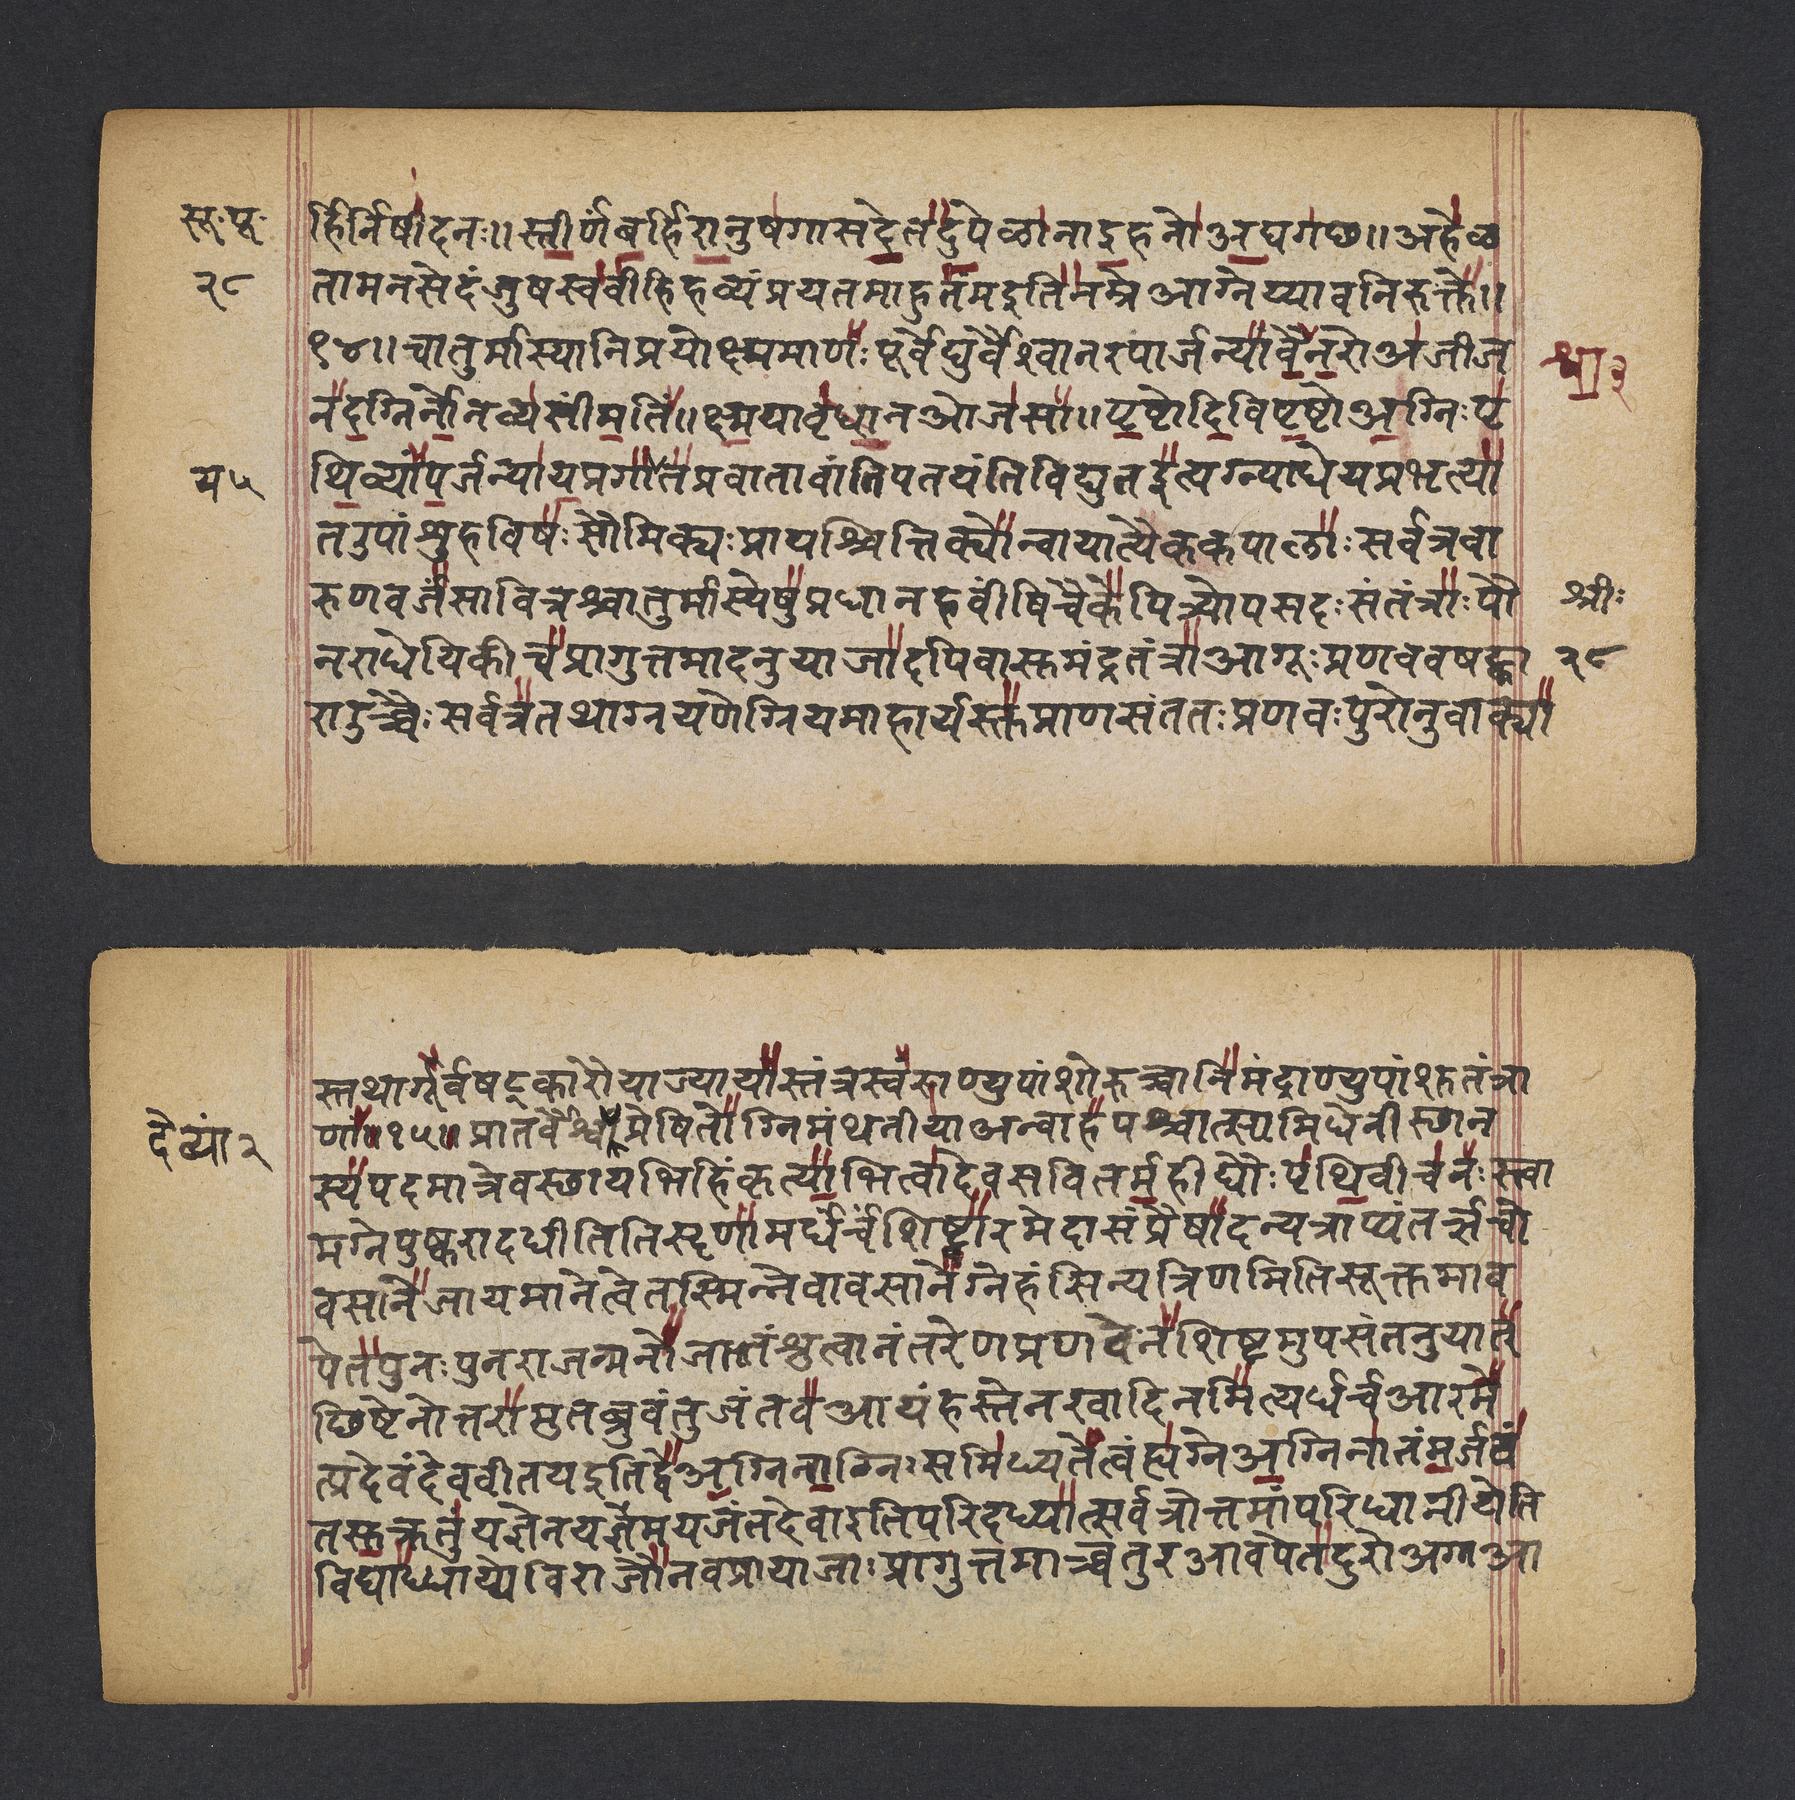 सू॰पू॰
र्हिर्निषीदनः॥ स्तीर्णंबर्हिरानुषगासदेतदुपेळानाइहनोअद्यगछ॥ अहेळ
२८
तामनसेदंजुषस्ववीहिहव्यंप्रयतमाहुतंमइतिनम्रेआग्नेय्यावनिरुक्ते॥
१४॥ चातुर्मास्यानिप्रयोक्ष्यमाणः पूर्वेद्युर्वैश्वानरपार्जन्यावैनरोअजीज
श्वा३
नदग्निर्नोनव्यसींमतिं॥ क्ष्मयावृधानओजसा॥ पृष्टोदिविपृष्टोअग्निः पृ
थिव्यांपर्जन्यायप्रगातप्रवातावांतिपतयंतिविद्युतइत्यग्न्याधेयप्रभृत्या
य५
तउपांशुहविषः सौमिक्यः प्रायश्चित्तिक्योन्वायात्यैककपालाः सर्वत्रवा
रुणवर्जंसावित्रश्चातुर्मास्येषुप्रधानहवींषिचैकेपित्र्योपसदः संतंत्राः पौ
श्रीः
नराधेयिकीचप्रागुत्तमादनुयाजादपिवास्तमंद्रतंत्राआगूः प्रणववषट्का
२८
राउच्चैः सर्वत्रतथाग्नयणेग्नियमाहार्यस्तप्राणसंततः प्रणवः पुरोनुवाक्या
स्तथागूर्वषट्कारोयाज्यायास्तंत्रस्वराण्युपांशोरुच्चानिमंद्राण्युपांशुतंत्रा
णां॥१५॥ प्रातर्वैश्वप्रेषितोग्निमंथनीयाअन्वाहपश्चात्सामिधेनीस्छान
देव्यां २
स्यपदमात्रेवस्छायभिहिंकृत्याभित्वादेवसवितर्महीद्यौः पृथिवीचनः स्त्वा
मग्नेपुष्करादधीतितिसृणामर्धर्चंशिष्ट्वारमेदासंप्रैषादन्यत्राप्यंतर्ऋचो
वसानेजायमानेत्वेतस्मिन्नेवावसानेग्नेहंसिन्यत्रिणमितिसूक्तमाव
पेतपुनः पुनराजन्मनोजातंश्रुत्वानंतरेणप्रणवेनशिष्टमुपसंतनुयात्
छिष्टेनोत्तरामुतब्रुवंतुजंतवआयंहस्तेनखादिनमित्यर्धर्चआरमे
त्प्रदेवंदेववीतयइतिद्वेअग्निनाग्निः समिध्यतेत्वंह्यग्नेअग्निनातंमर्जयं
तसुक्रतुंयज्ञेनयज्ञमयजंतदेवाइतिपरिदध्यात्सर्वत्रोत्तमांपरिधानीयेति
विद्याध्धाय्येविराजौनवप्रयाजाः प्रागुत्तमाच्चतुरआवपेतदुरोअग्नआ